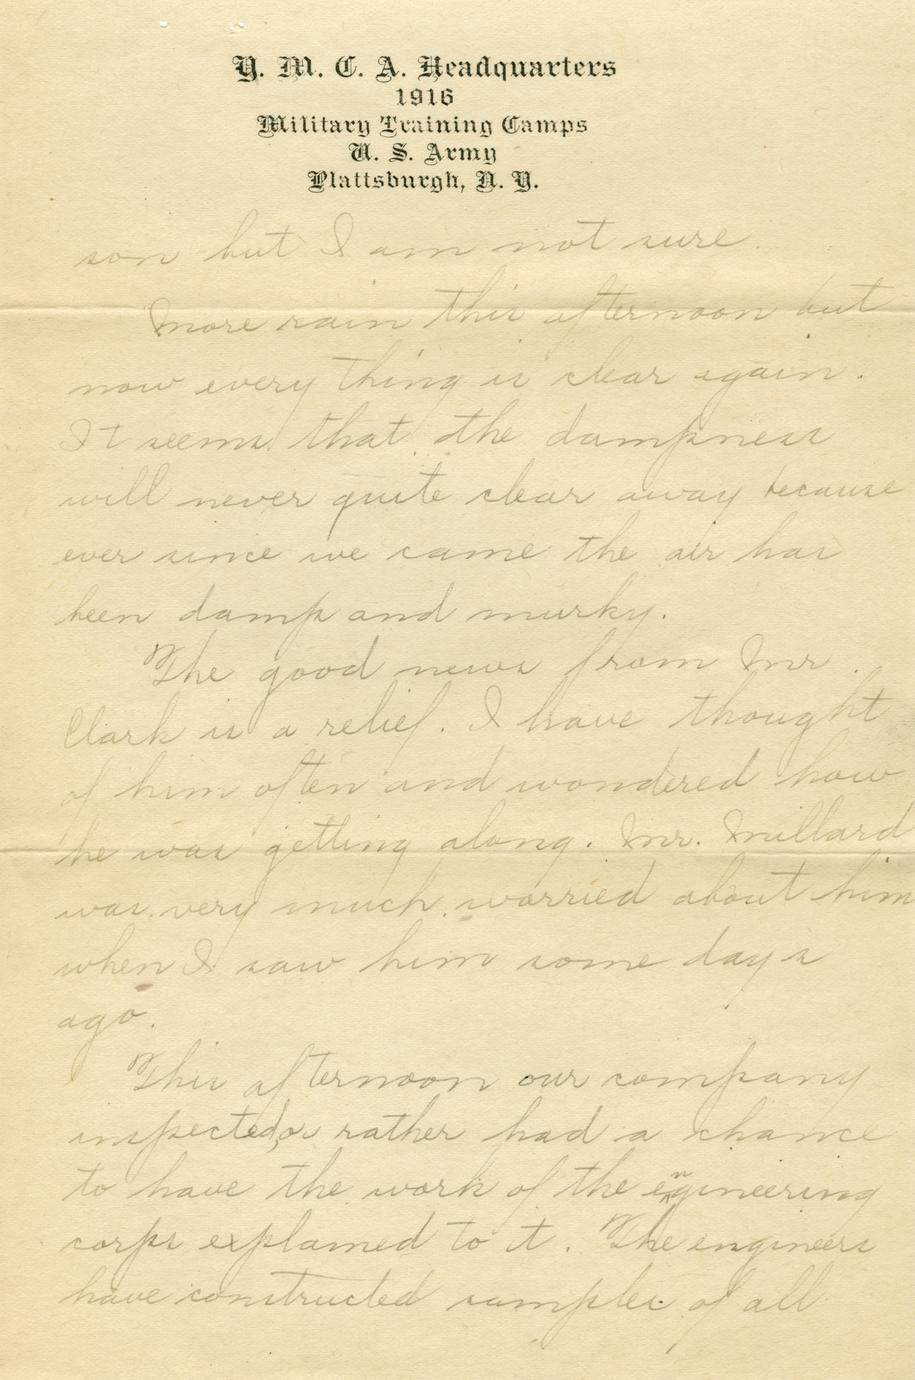 Y. M. C. A. Headquarters
1916
Military Training Camps
U. S. Army
Plattsburgh, N. Y.
son but I am not sure.
More rain this afternoon but
now every thing is clear again.
It seems that the dampness
will never quite clear away because
ever since we came the air has
been damp and murky.
The good news from Mr.
Clark is a relief. I have thought
of him often and wondered how
he was getting along. Mr. Millard
was very much worried about him
when I saw him some days
ago.
This afternoon our company
inspected, or rather had a chance
to have the work of the engineering
corps explained to it. The engineers
have constructed samples of all